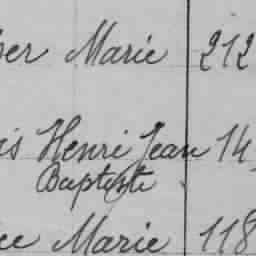 er Marie 212
is Henri Jean 14
Baptiste
ce Marie 118